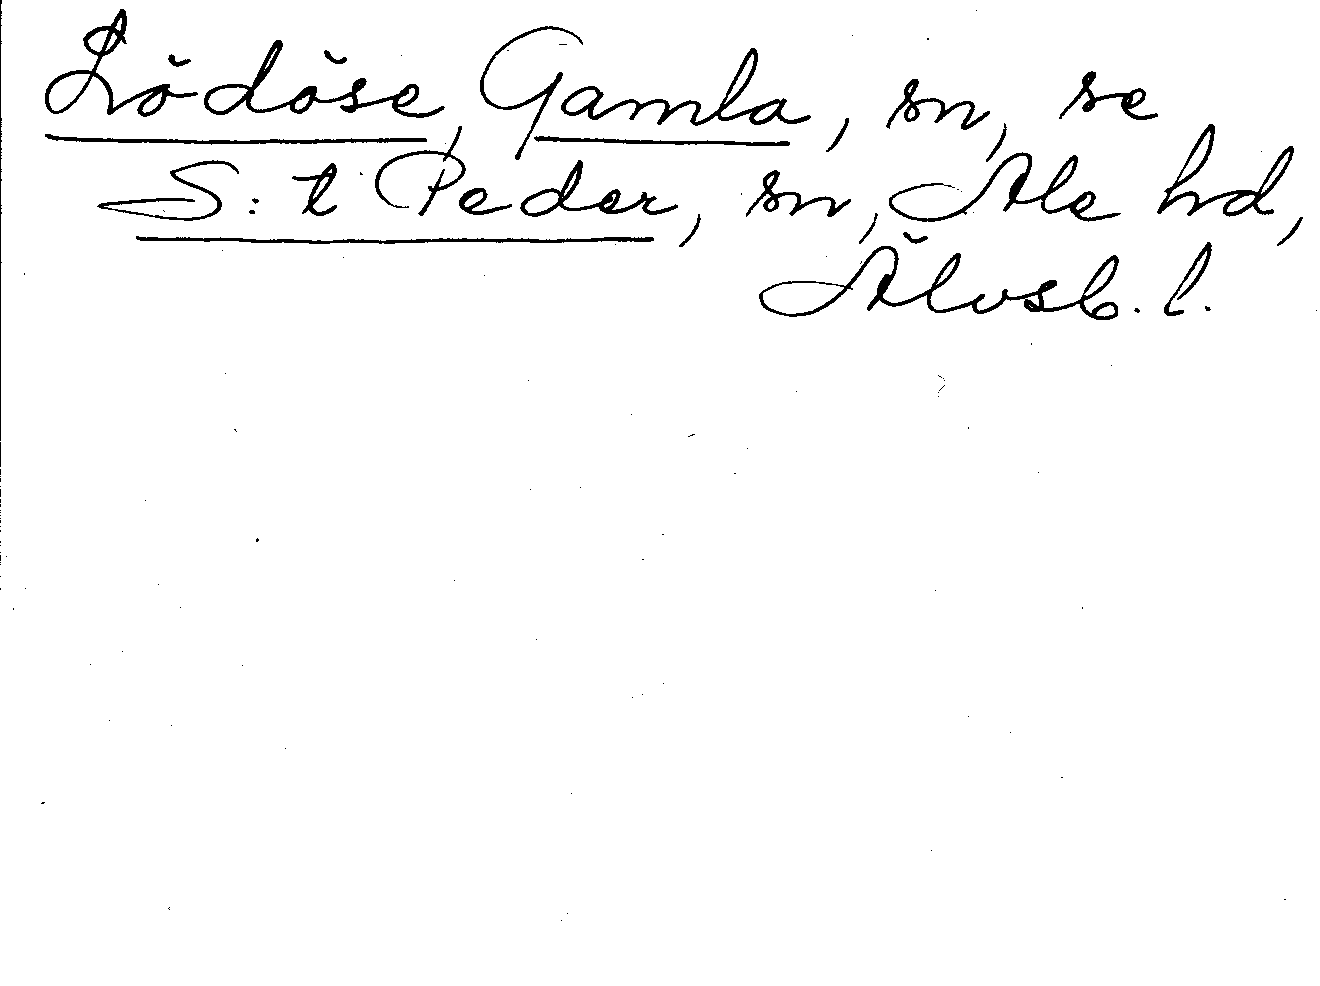 Lödöse, Gamla, sn, se
S:t Peder, sn, Ale hd,
Älvsb. l.